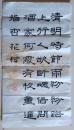 清明時節雨紛紛路
上行人欲斷魂借問
酒家何處有牧童遙
指杏花村